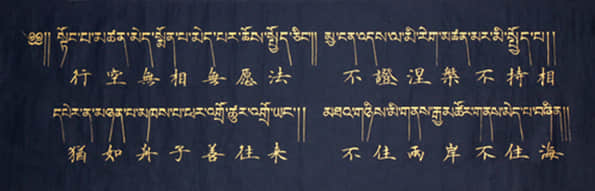 ༄༅། །སྟོང་པ་མཚན་མེད་སྨོན་པ་མེད་པར་ཆོས་སྤྱོད་ཅིང་།། མྱ་ངན་འདས་ལ་མི་རེག་མཚན་མར་མི་སྤྱོད་པ།།
行空無相無愿法 不證涅槃不持相
དཔེར་ན་མཉན་པ་མཁས་པ་ཕར་འགྲོ་ཚུར་འགྲོ་ཡང་།། མཐའ་གཉིས་མི་གནས་རྒྱ་མཚོར་གནས་མེད་པ་བཞིན།།
猶如舟子善往来 不住兩岸不住海